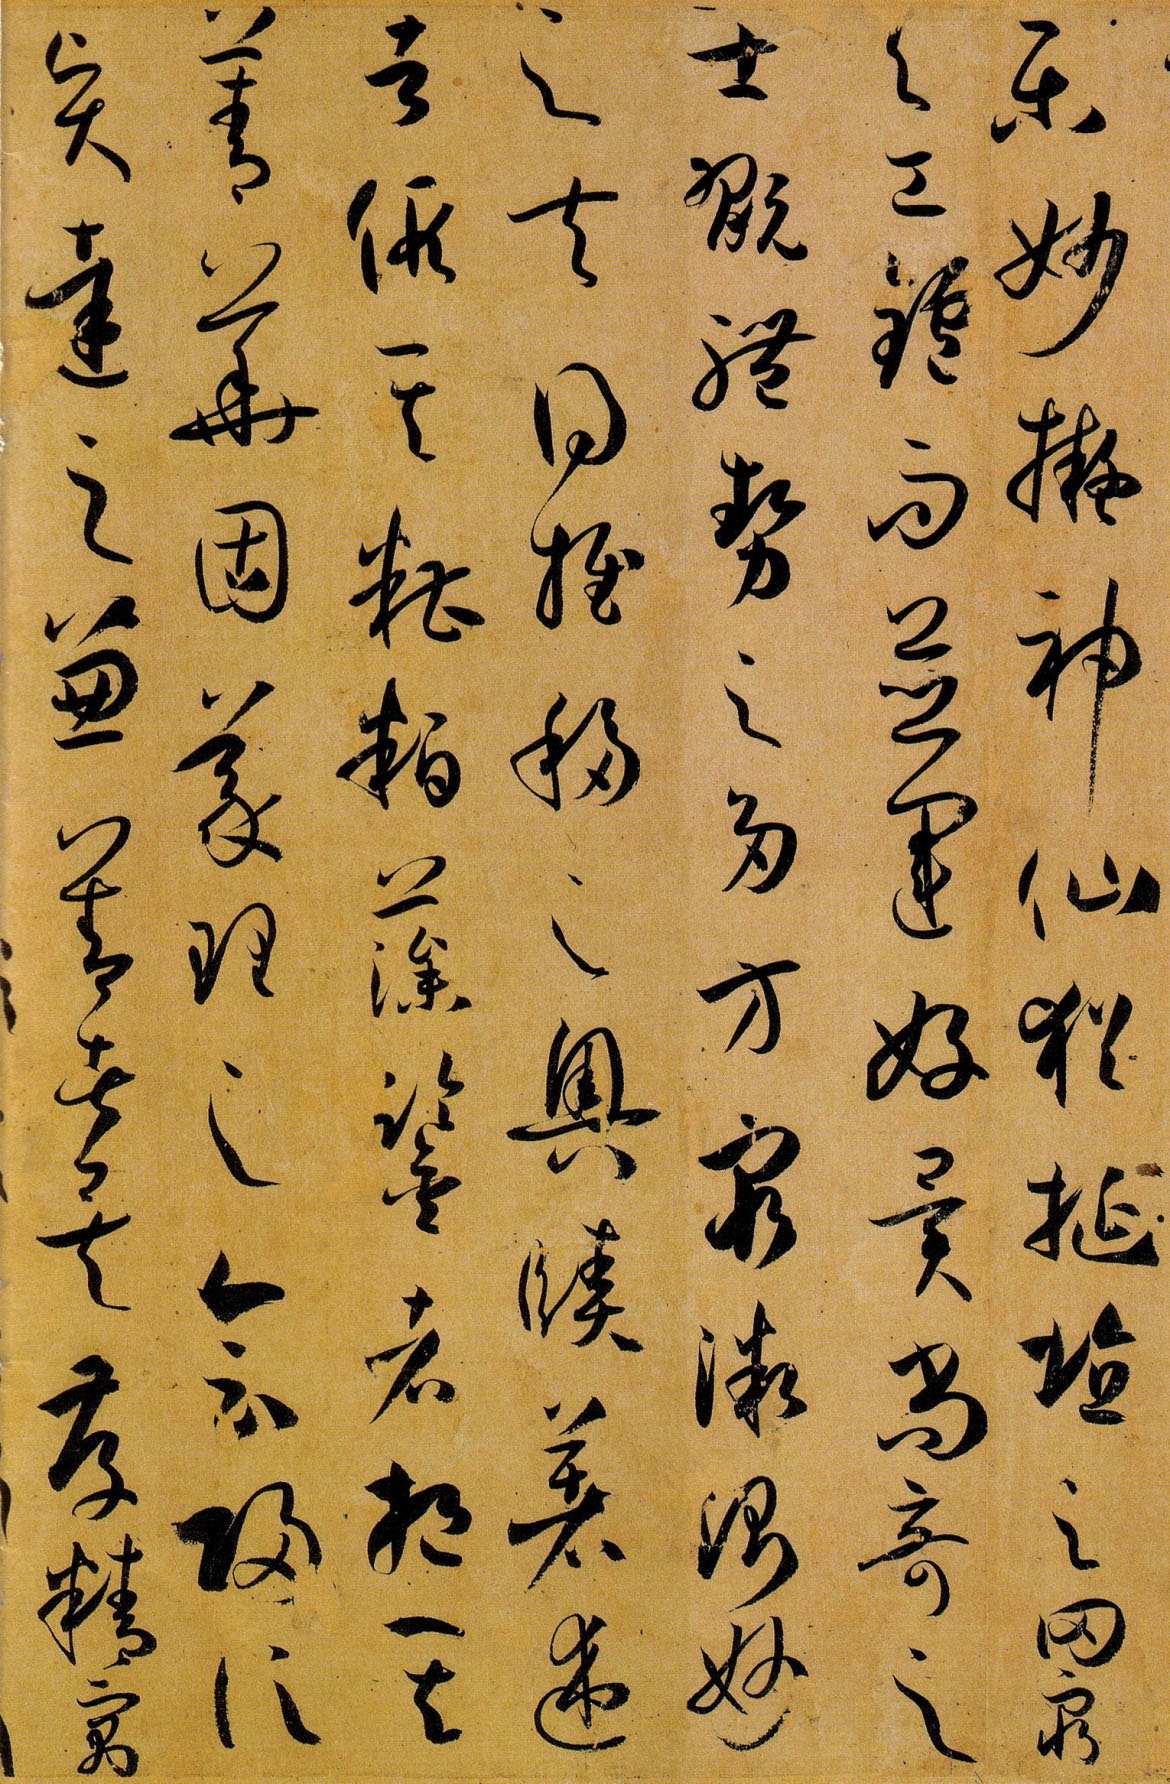 樂妙擬神仙猶埏埴之罔窮
與工鑪而並運好異尚奇之
士翫體勢之多方窮微測妙
之夫得推移之奧賾著述
者假其糟粕藻鑒者挹其
菁華固義理之會歸信
賢達之兼善者矣存精寓